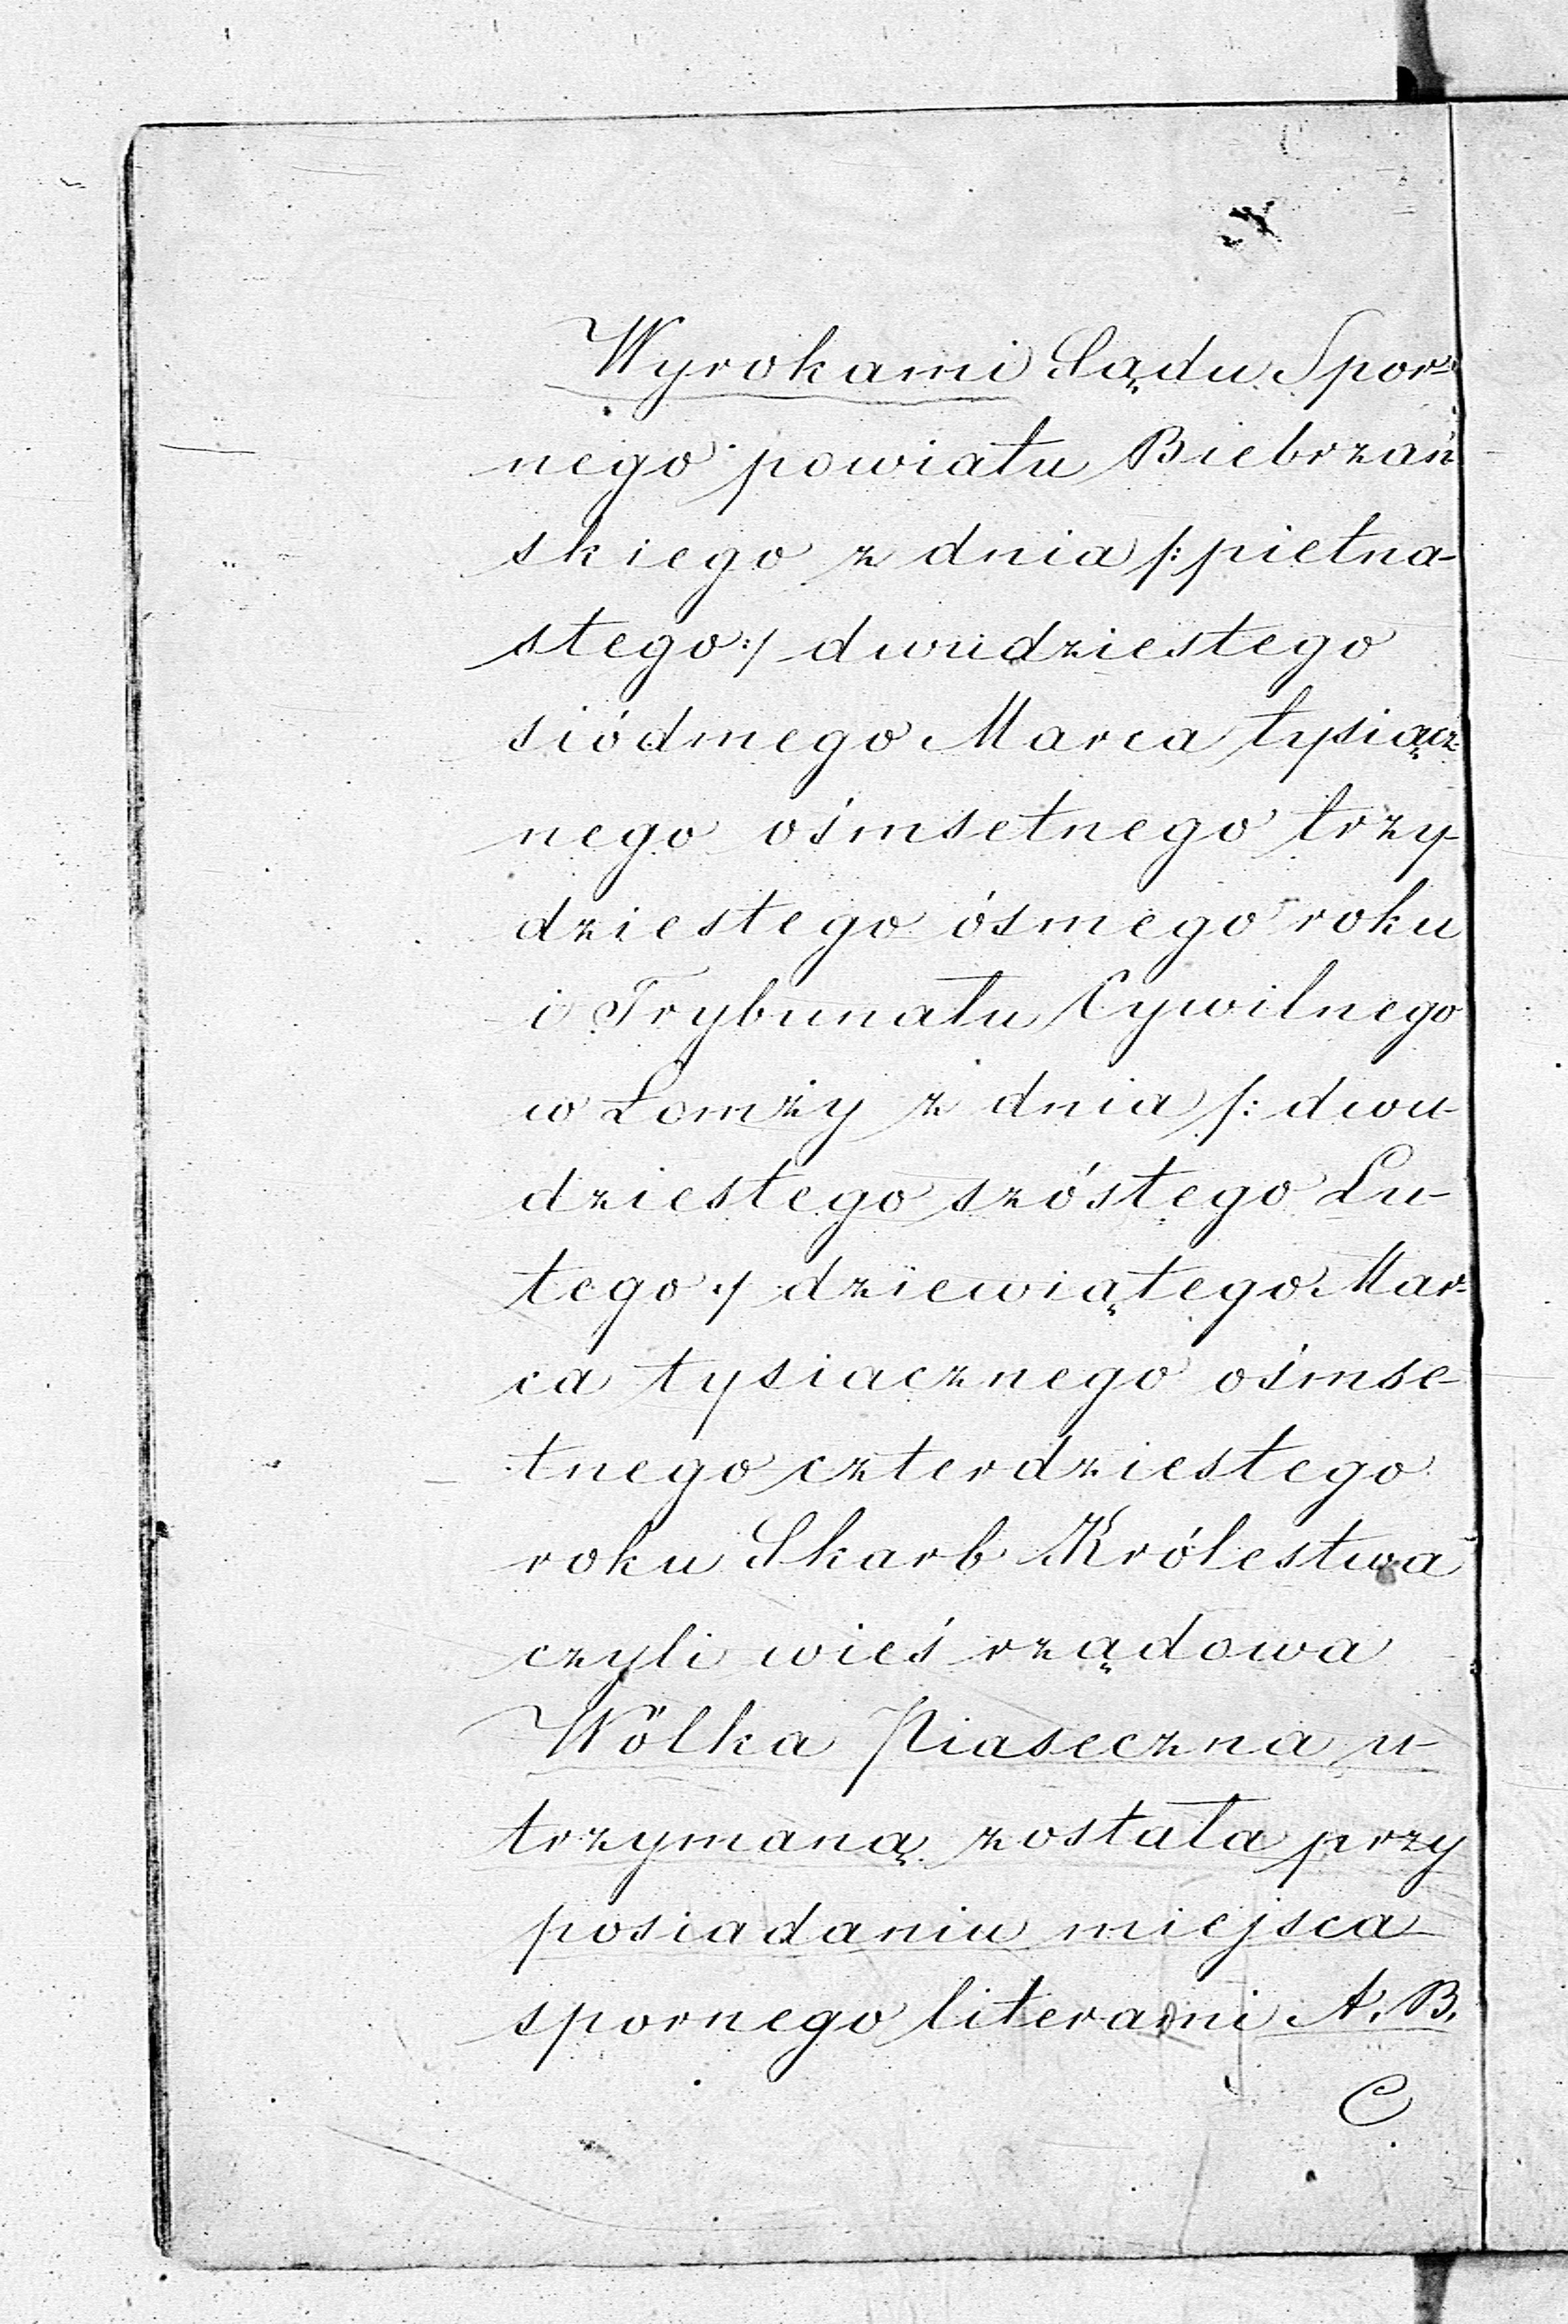 Wyrokami Sądu Spor-
nego powiatu Biebrzań
skiego z dnia /: pietna-
stego :/ dwudziestego
siódmego Marca tysiącz
nego ośmsetnego trzy-
dziestego ósmego roku
i Trybunału Cywilnego
w Łomży z dnia /: dwu-
dziestego szóstego Lu-
tego :/ dziewiątego Mar-
ca tysiacznego ośmse-
tnego czterdziestego
roku Skarb Królestwa
czyli wieś rządowa
Wólka Piaseczna u-
trzymaną została przy
posiadaniu miejsca
spornego literami A. B.
C